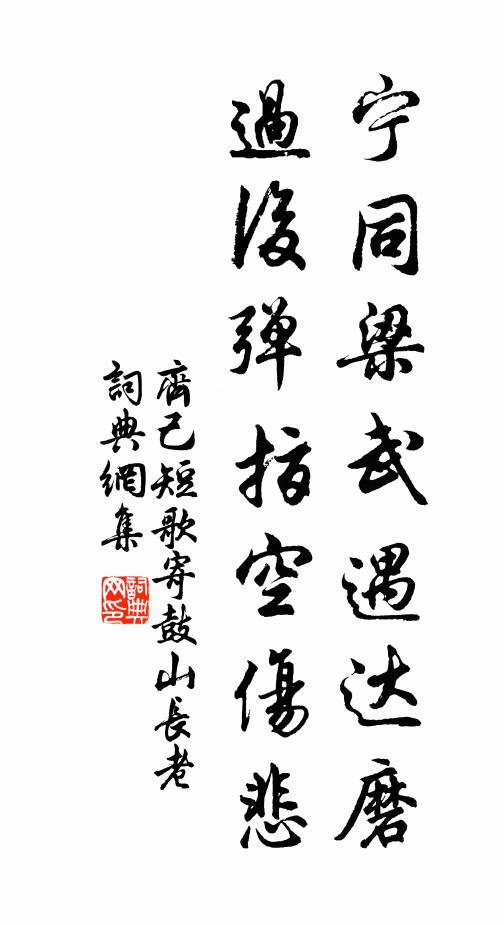 宁同梁武遇达磨
過後弹指空傷悲
齊己短歌寄鼓山長老
詞典網集
詞典網印